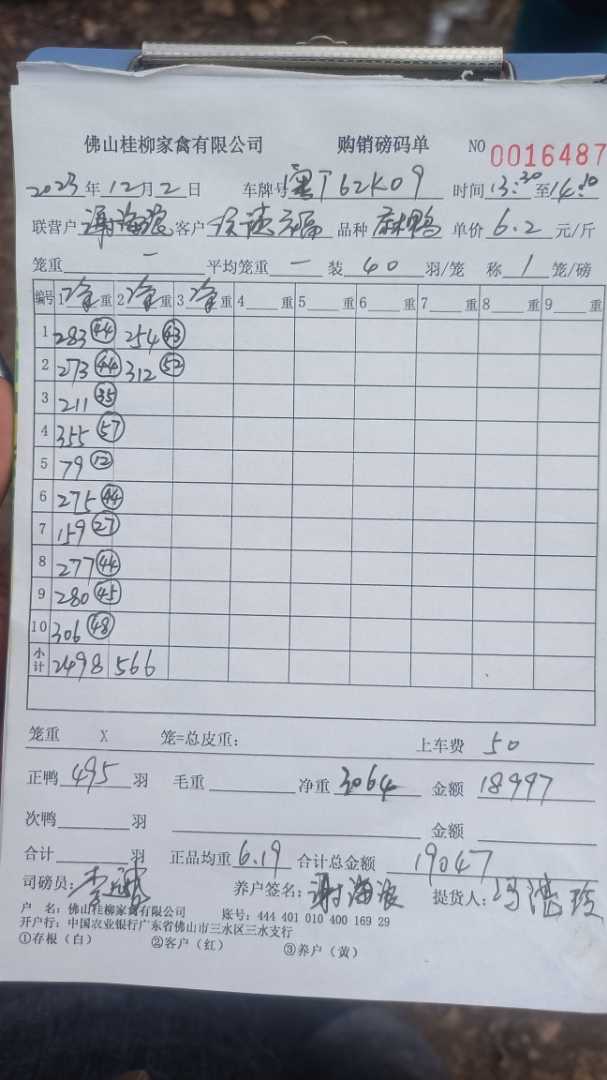 佛山桂柳家禽有限公司 购销磅码单 NO 0016487
2023年12月2日 车牌号粤J62K09 时间13:30至14:10
联营户谢海浪客户 品种麻鸭 单价6.2元/斤
笼重 一 平均笼重 一 装 40 羽/笼 称 1 笼/磅
编号 1净重 2净重 3净重 4 重 5 重 6 重 7 重 8 重 9 重
1 283 44 254 43
2 273 44 312 52
3 211 35
4 355 57
5 79 12
6 275 44
7 159 27
8 277 44
9 280 45
10 306 48
小计 2498 566
笼重 X 笼=总皮重: 上车费 50
正鸭 495 羽 毛重 净重 3064 金额 18997
次鸭 羽 金额
合计 羽 正品均重 6.19 合计总金额 19047
司磅员: 养户签名: 谢海浪 提货人:
户 名: 佛山桂柳家禽有限公司 账号: 444 401 010 400 169 29
开户行: 中国农业银行广东省佛山市三水区三水支行
①存根（白） ②客户（红） ③养户（黄）